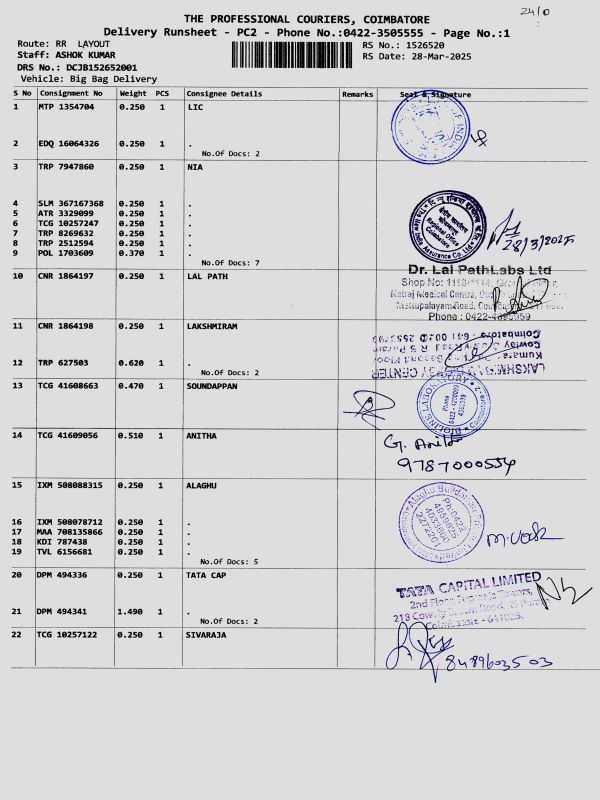 24/0
THE PROFESSIONAL COURIERS, COIMBATORE
Delivery Runsheet - PC2 - Phone No.:0422-3505555 - Page No.:1
Route: RR LAYOUT
RS No.: 1526520
Staff: ASHOK KUMAR
RS Date: 28-Mar-2025
DRS No.: DCJB152652001
Vehicle: Big Bag Delivery
S No Consignment No Weight PCS Consignee Details Remarks Seal & Signature
1 MTP 1354704 0.250 1 LIC
2 EDQ 16064326 0.250 1 .
No.Of Docs: 2
3 TRP 7947860 0.250 1 NIA
4 SLM 367167368 0.250 1 .
5 ATR 3329099 0.250 1 .
6 TCG 10257247 0.250 1 .
7 TRP 8269632 0.250 1 .
8 TRP 2512594 0.250 1 .
9 POL 1703609 0.370 1 .
No.Of Docs: 7
Regional Office
Coimbatore
28/3/2025
10 CNR 1864197 0.250 1 LAL PATH
Dr. Lal PathLabs Ltd
Shop No: 1113/1114,
Natraj Medical Centre,
Mettupalayam Road,
Phone : 0422-4395959
11 CNR 1864198 0.250 1 LAKSHMIRAM
12 TRP 627503 0.620 1 .
No.Of Docs: 2
13 TCG 41608663 0.470 1 SOUNDAPPAN
BIOLINE LABORATORY
Coimbatore - 2
Phone
14 TCG 41609056 0.510 1 ANITHA
G. Anitha
9787000554
15 IXM 508088315 0.250 1 ALAGHU
16 IXM 508078712 0.250 1 .
17 MAA 708135866 0.250 1 .
18 KDI 787438 0.250 1 .
19 TVL 6156681 0.250 1 .
No.Of Docs: 5
Ph:0422
20 DPM 494336 0.250 1 TATA CAP
TATA CAPITAL LIMITED
2nd Floor, Towers,
Coimbatore - 641025.
21 DPM 494341 1.490 1 .
No.Of Docs: 2
22 TCG 10257122 0.250 1 SIVARAJA
8489603503